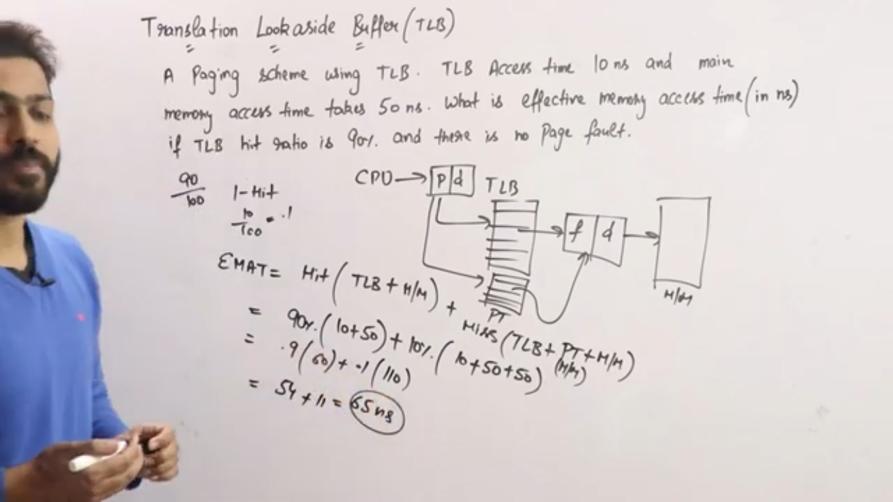 Translation Lookaside Buffer (TLB)
A Paging scheme using TLB. TLB Access time 10 ns and main
memory access time takes 50 ns. What is effective memory access time (in ns)
if TLB hit ratio is 90%. and there is no Page fault.
90/100
1-Hit
10/100 = .1
CPU → p d TLB
f d
M/M
PT
EMAT = Hit (TLB + M/M) + Miss (TLB + PT + M/M)
(M/M)
= 90%. (10+50) + 10%. (10+50+50)
= .9 (60) + .1 (110)
= 54 + 11 = 65 ns